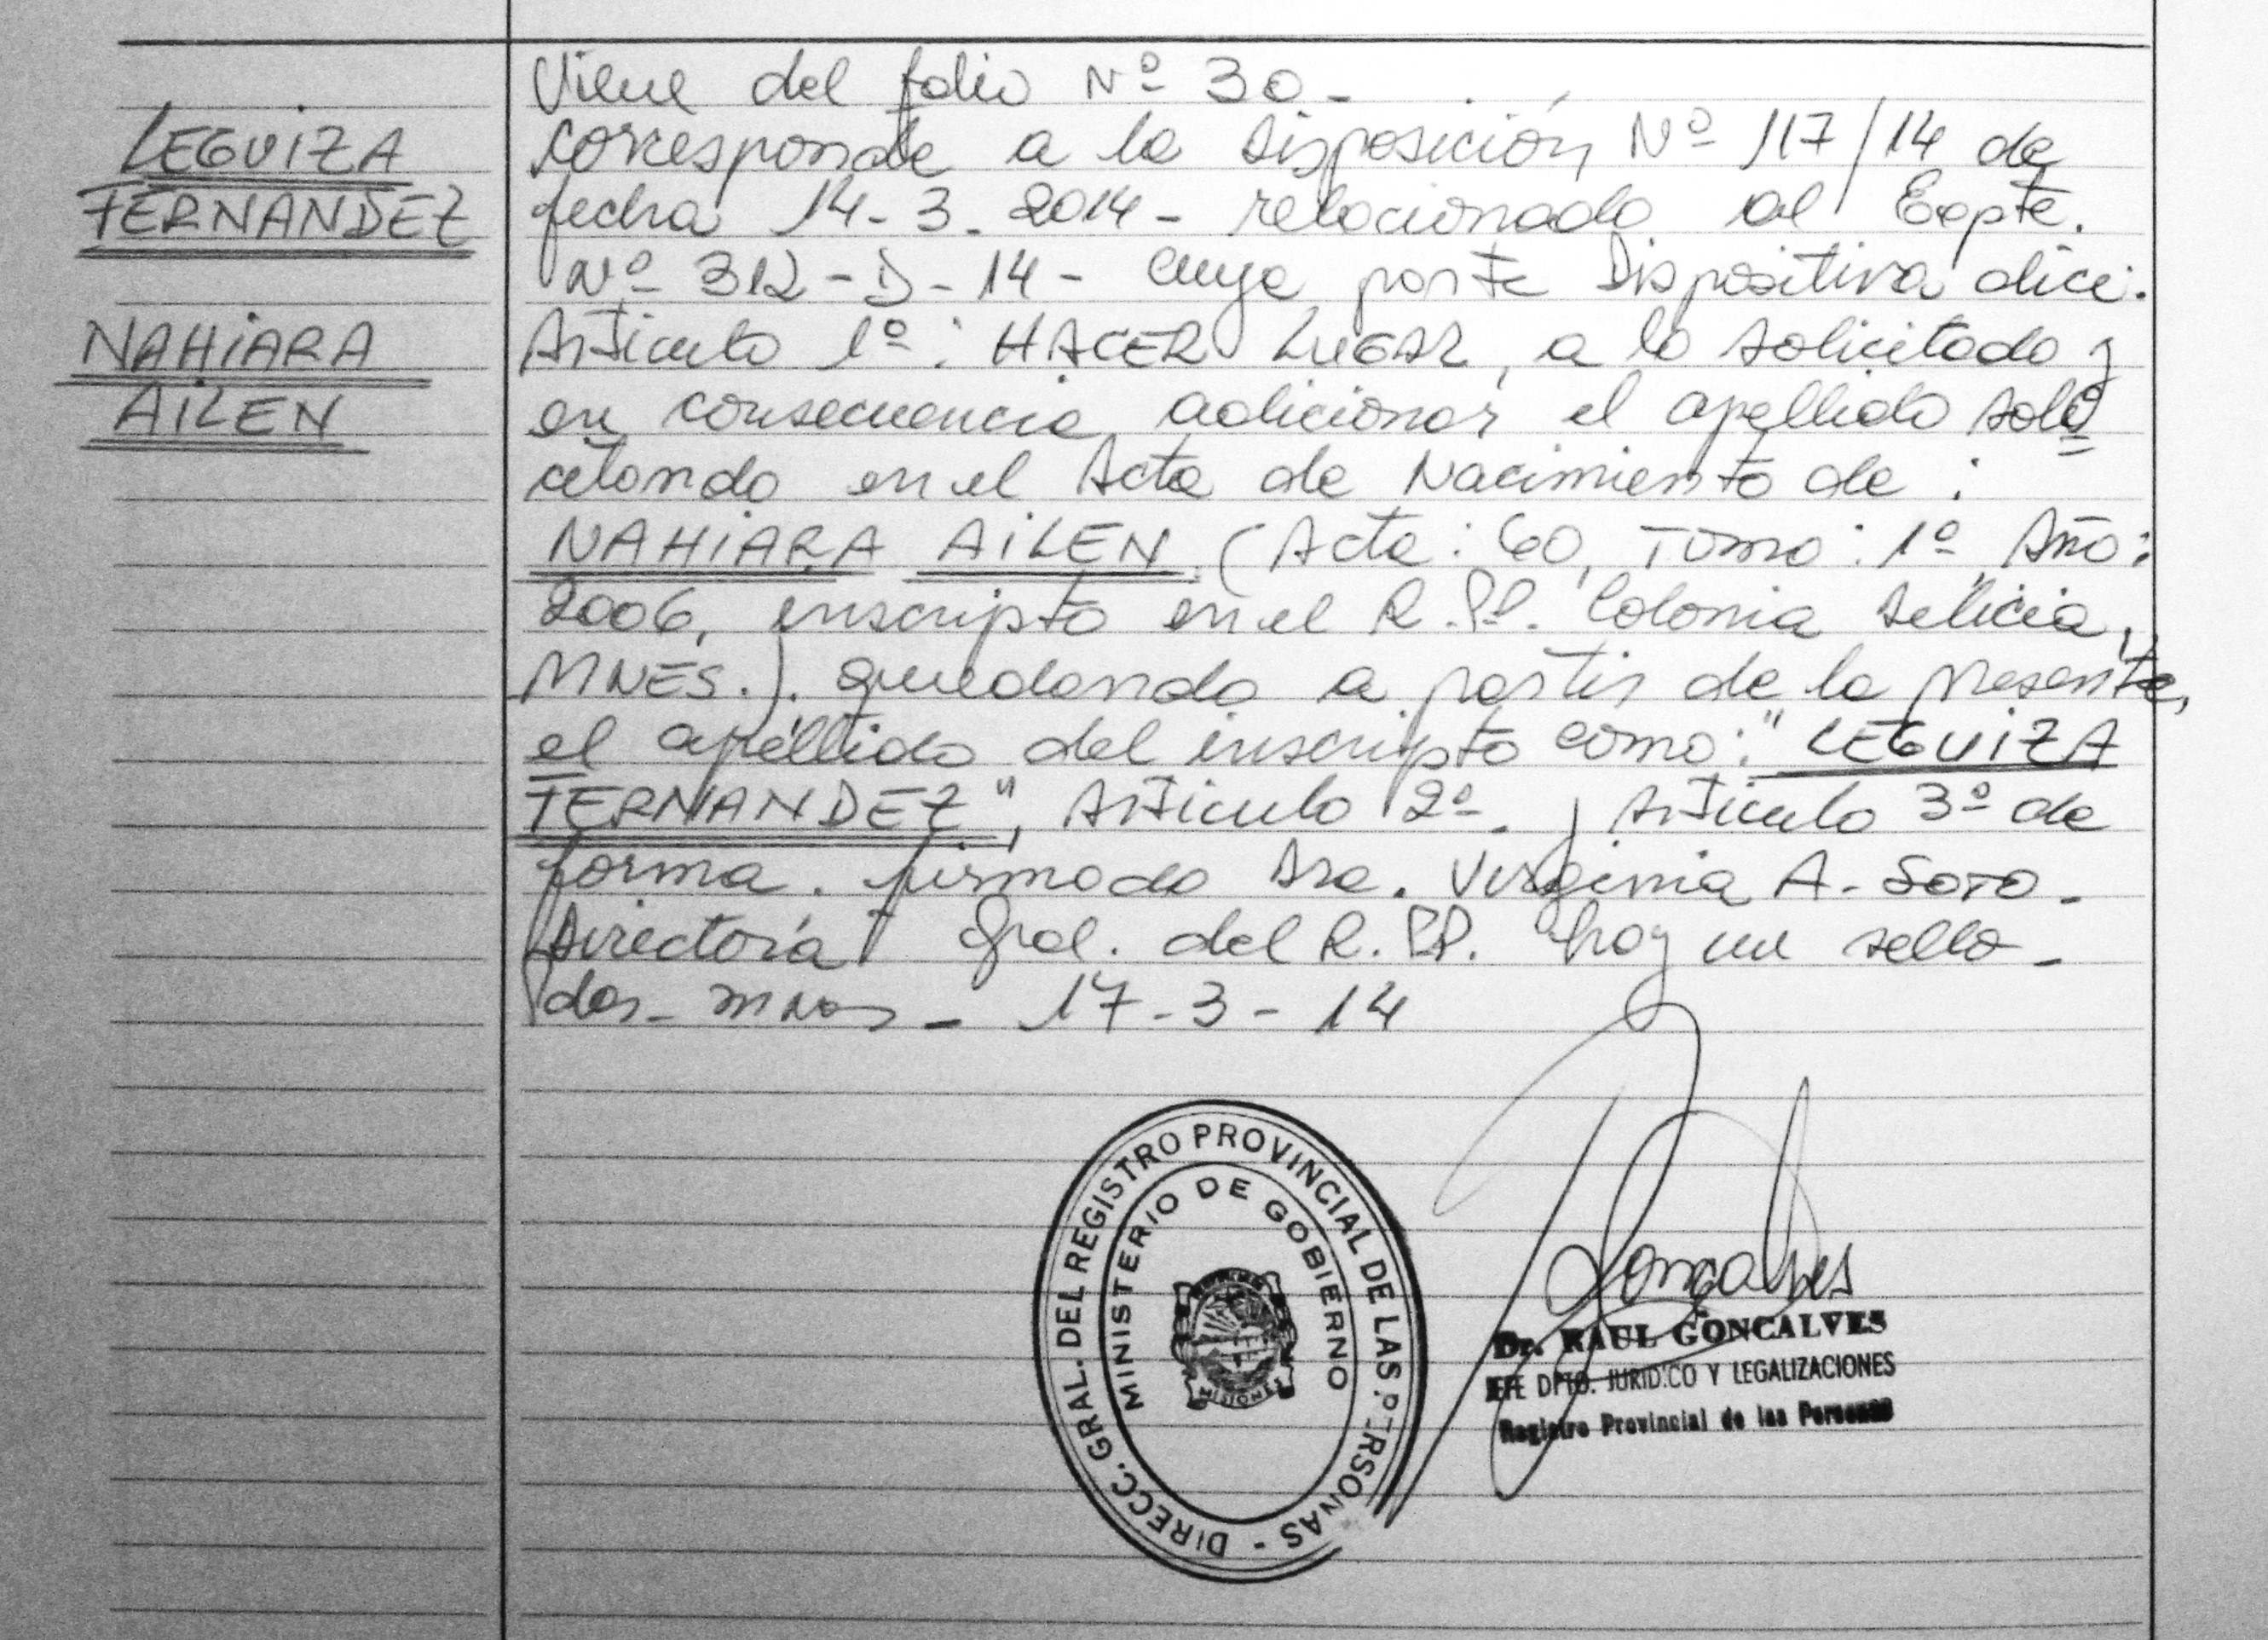 LEGUIZA
FERNANDEZ
NAHIARA
AILEN
Viene del folio Nº 30-
corresponde a la Disposición Nº 117/14 de
fecha 14-3-2014- relacionado al Expte.
Nº 312-D-14- cuya parte Dispositiva dice:
Articulo 1º: HACER LUGAR, a lo solicitado y
en consecuencia adicionar el apellido soli
citando en el Acta de Nacimiento de:
NAHIARA AILEN. (Acta: 60, Tomo: 1º, Año:
2006, inscripto en el R.PP. Colonia Delicia,
MNES.). quedando a partir de la presente,
el apellido del inscripto como: "LEGUIZA
FERNANDEZ", Articulo 2º. y Articulo 3º de
forma. firmado Dra. Virginia A. SOTO-
Directora Gral. del R.PP. hay un sello-
17-3-14
DIRECC. GRAL. DEL REGISTRO PROVINCIAL DE LAS PERSONAS -
MINISTERIO DE GOBIERNO
MISIONES
Goncalves
Dr. RAUL GONCALVES
JEFE DPTO. JURIDICO Y LEGALIZACIONES
Registro Provincial de las Personas